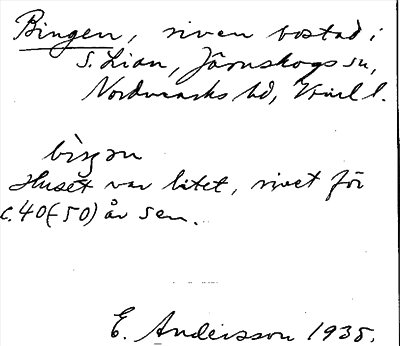 Bingen, riven bostad i
S. Lian, Järnskogs sn,
Nordmarks hd, Vrml l.
bìŋən
Huset var litet, rivet för
c. 40(-50) år sen.
E. Andersson 1935.